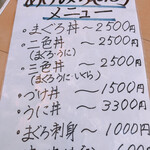 メニュー
・まぐろ丼〜2500円
・二色丼〜2500円
(まぐろうに)
・三色丼〜2500円
(まぐろ・うに・いくら)
・づけ丼〜1500円
・うに丼〜3300円
・まぐろ刺身〜1000円